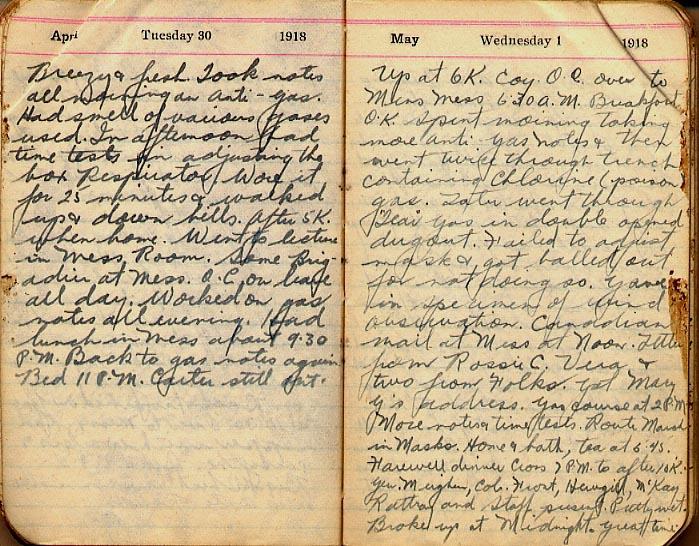 April Tuesday 30 1918
Breezy & fresh. Took notes
all morning on Anti-gas.
Had smell of various gases
used. In afternoon had
time tests in adjusting the
box Respirator. Wore it
for 25 minutes & walked
up & down hills. After 5K.
when home. Went to lecture
in Mess Room. Same Brig-
adier at Mess. O.C. on leave
all day. Worked on gas
notes all evening. Had
lunch in Mess about 9.30
P.M. Back to gas notes again
Bed 11 P.M. Carter still out.
May Wednesday 1 1918
Up at 6K. Coy. O.C. over to
Mens Mess 6.30 A.M. Breakfast
O.K. Spent morning taking
more anti-gas notes & then
went twice through trench
containing Chlorine (poison
gas. Later went through
Tear gas in double opened
dugout. Failed to adjust
mask & got balled out
for not doing so. Gave
in specimen of wind
observation. Canadian
mail at Mess at Noon. Letter
from Rossie C. Vera &
two from Folks. Got Mary
G's address. Gas course at 2 P.M.
More notes & time tests. Route March
in Masks. Home & bath, tea at 5.45.
Farewell dinner 7 P.M. to after 10K.
Gen. Col. McKay
and Staff present. Pretty wet.
Broke up at Midnight. Great time.